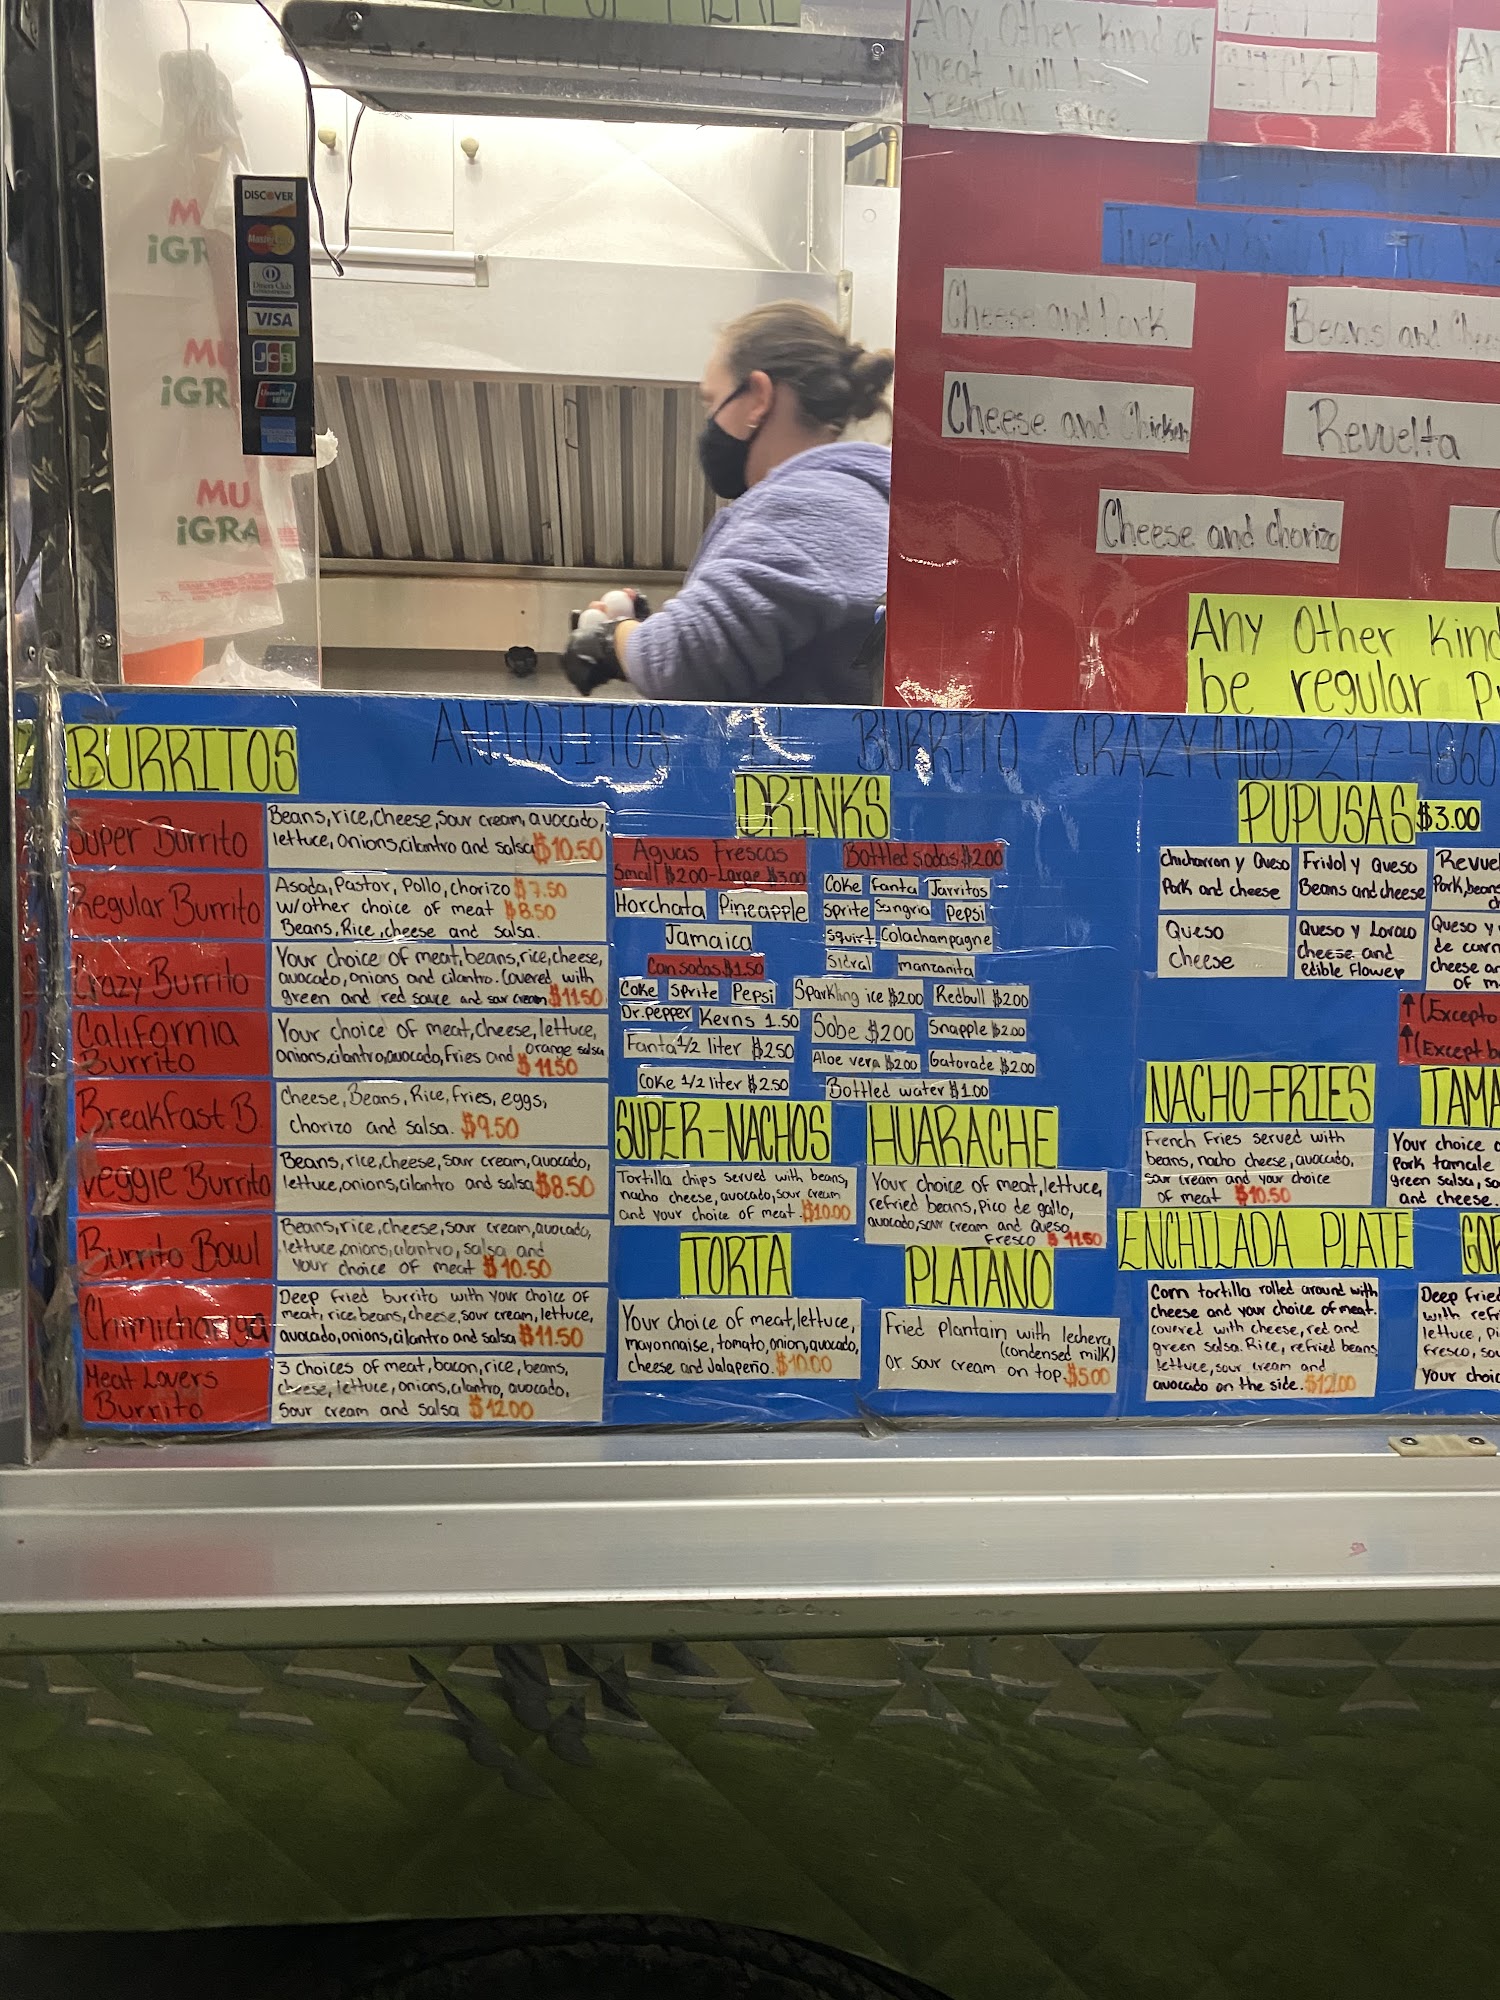 Any Other kind of
meat will be
regular price.
CHICKEN
DISCOVER
MasterCard
Diners Club
INTERNATIONAL
VISA
JCB
UnionPay
M
iGR
MU
iGRA
MU
iGRA
Tuesday
Cheese and Pork
Beans and Chees
Cheese and Chicken
Revuelta
Cheese and chorizo
Any Other Kind
be regular p
ANTOJITOS BURRITO CRAZY (408)-217-4860
BURRITOS
Super Burrito
Beans, rice, cheese, sour cream, avocado,
lettuce, onions, cilantro and salsa $10.50
Regular Burrito
Asada, Pastor, Pollo, chorizo $7.50
w/other choice of meat $8.50
Beans, Rice, cheese and salsa.
Crazy Burrito
Your choice of meat, beans, rice, cheese,
avocado, onions and cilantro. Covered with
green and red sauce and sour cream $11.50
California
Burrito
Your choice of meat, cheese, lettuce,
onions, cilantro, avocado, fries and orange salsa
$11.50
Breakfast B.
Cheese, Beans, Rice, fries, eggs,
chorizo and salsa. $9.50
Veggie Burrito
Beans, rice, cheese, sour cream, avocado,
lettuce, onions, cilantro and salsa $8.50
Burrito Bowl
Beans, rice, cheese, sour cream, avocado,
lettuce, onions, cilantro, salsa and
your choice of meat $10.50
Chimichanga
Deep fried burrito with your choice of
meat, rice, beans, cheese, sour cream, lettuce,
avocado, onions, cilantro and salsa $11.50
Meat Lovers
Burrito
3 choices of meat, bacon, rice, beans,
cheese, lettuce, onions, cilantro, avocado,
sour cream and salsa $12.00
DRINKS
Aguas Frescas
Small $2.00-Large $3.00
Horchata Pineapple
Jamaica
Can sodas $1.50
Coke Sprite Pepsi
Dr. pepper Kerns 1.50
Fanta 1/2 liter $2.50
Coke 1/2 liter $2.50
Bottled sodas $2.00
Coke Fanta Jarritos
Sprite Sangria Pepsi
Squirt Colachampagne
Sidral manzanita
Sparkling ice $2.00 Redbull $2.00
Sobe $2.00 Snapple $2.00
Aloe vera $2.00 Gatorade $2.00
Bottled water $1.00
SUPER-NACHOS
Tortilla chips served with beans,
nacho cheese, avocado, sour cream
and your choice of meat. $10.00
HUARACHE
Your choice of meat, lettuce,
refried beans, pico de gallo,
avocado, sour cream and queso
fresco $11.50
TORTA
Your choice of meat, lettuce,
mayonnaise, tomato, onion, avocado,
cheese and Jalapeño. $10.00
PLATANO
Fried plantain with lechera
(condensed milk)
or sour cream on top. $5.00
PUPUSAS $3.00
Chicharron y Queso
Pork and cheese
Frijol y Queso
Beans and cheese
Revuel
Pork, beans
Queso
cheese
Queso y Loroco
Cheese and
edible flower
Queso y
de carn
cheese an
of m
(Excepto
(Except b
NACHO-FRIES
French fries served with
beans, nacho cheese, avocado,
sour cream and your choice
of meat $10.50
TAMA
Your choice o
Pork tamale
green salsa, so
and cheese.
ENCHILADA PLATE
Corn tortilla rolled around with
cheese and your choice of meat.
covered with cheese, red and
green salsa. Rice, refried beans,
lettuce, sour cream and
avocado on the side. $12.00
GOR
Deep fried
with refri
lettuce, pi
fresco, sou
Your choic